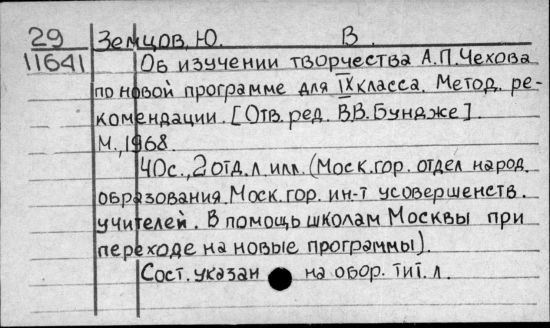 29 Земцов, Ю. В.
11641 Об изучении творчества А.П.Чехова
по новой программе для IX класса. Метод. ре-
комендации. [Отв. ред. В.В. Бундже].
М., 1968.
40с., 2 отд. л. илл. (Моск. гор. отдел народ.
образования. Моск. гор. ин-т усовершенств.
учителей. В помощь школам Москвы при
переходе на новые программы).
Сост. указан на обор. тит. л.